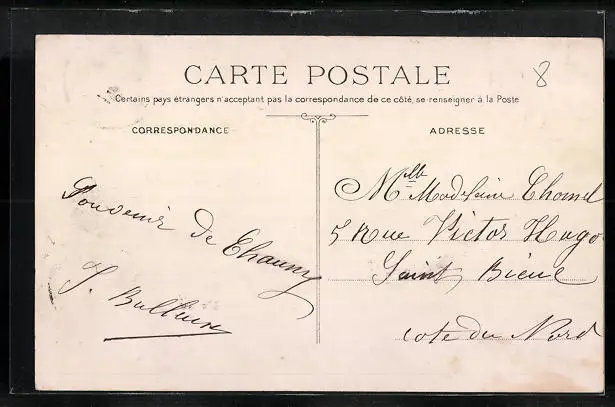 8
CARTE POSTALE
Certains pays étrangers n'acceptant pas la correspondance de ce côté, se renseigner à la Poste
CORRESPONDANCE
ADRESSE
Souvenir de Chauny
Mlle Madeleine Chomel
5 Rue Victor Hugo
Saint Brieuc
cote du Nord